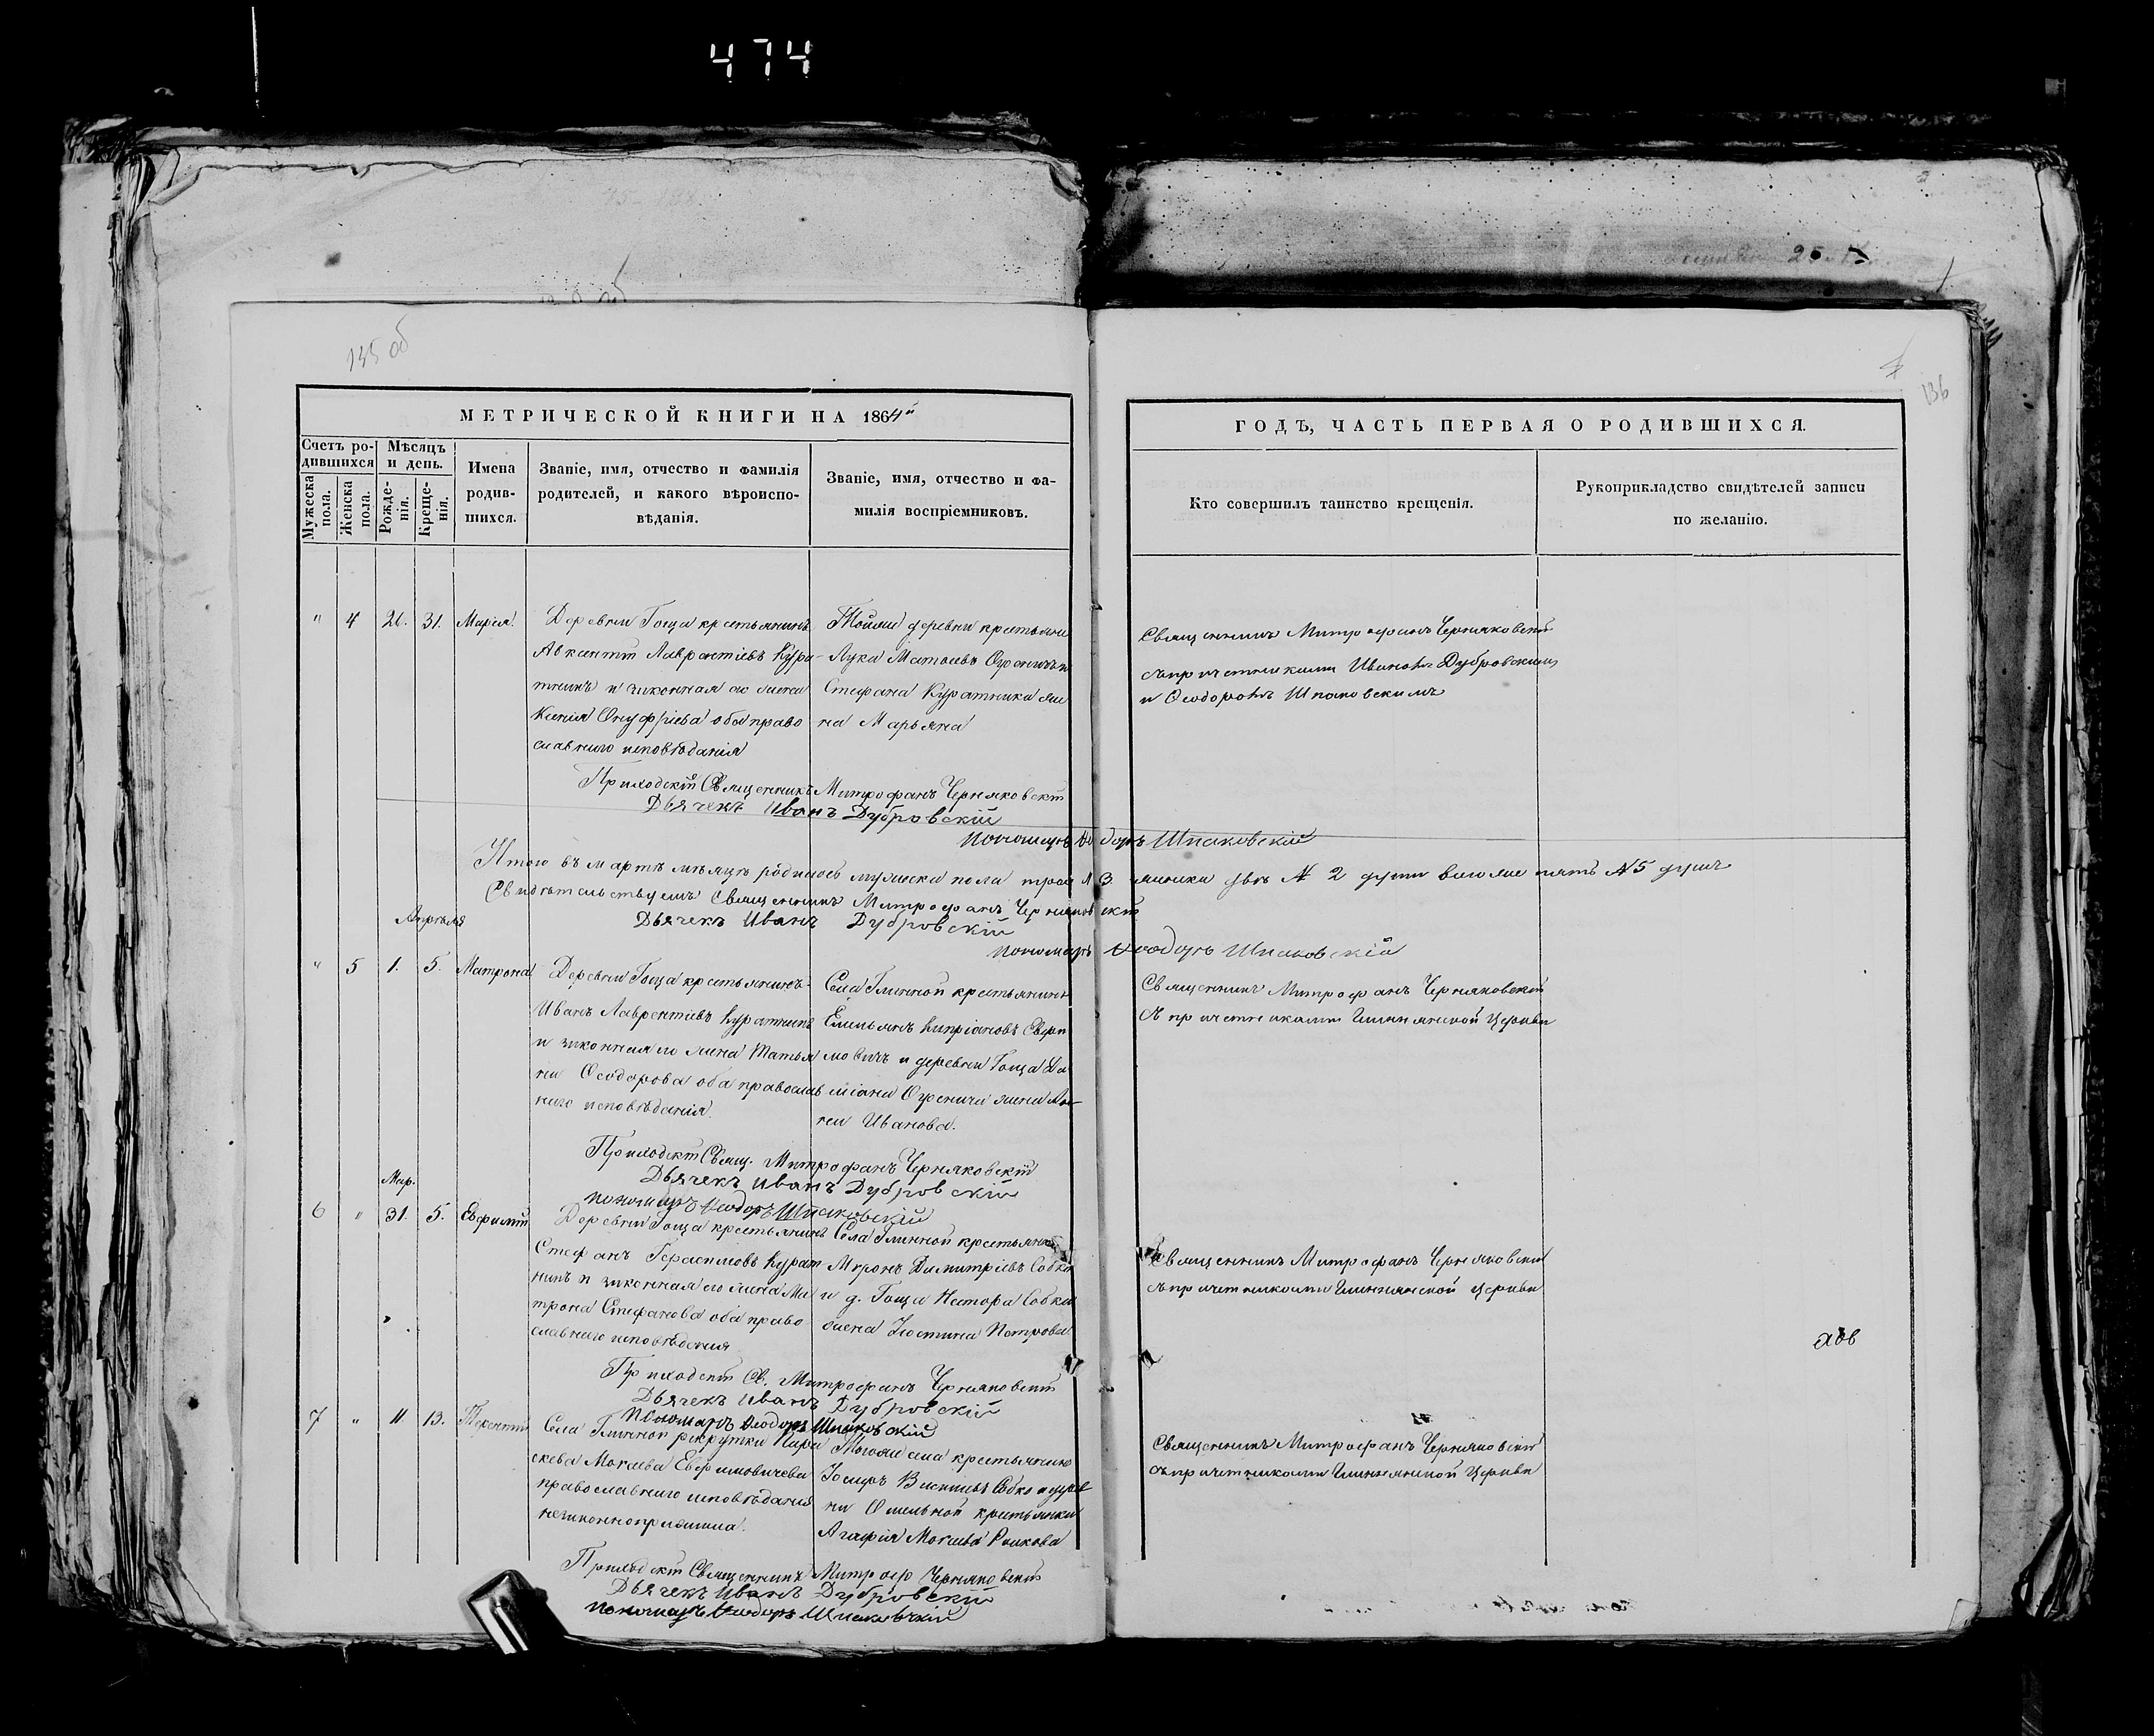 474
135 об
136
МЕТРИЧЕСКОЙ КНИГИ НА 1864й
ГОДЪ, ЧАСТЬ ПЕРВАЯ О РОДИВШИХСЯ.
Счетъ ро-
дившихся
Мѣсяцъ
и день.
Мужеска
пола.
Женска
пола.
Рожде-
нія.
Креще-
нія.
Имена
родив-
шихся.
Званіе, имя, отчество и фамилія
родителей, и какого вѣроиспо-
вѣданія.
Званіе, имя, отчество и фа-
милія воспріемниковъ.
Кто совершилъ таинство крещенія.
Рукоприкладство свидѣтелей записи
по желанію.
" 4 26. 31. Марія.
Деревни Гоща крестьянинъ
Авксентій Лаврентіевъ Кура-
тникъ и законная его жена
Ксенія Онуфріева оба право
славнаго исповѣданія
Тойже деревни крестьяне
Лука Матѳіевъ
Стефана Куратника же
на Марьяна
Священникъ Митрофанъ Черняковскій
съ причетниками Иваномъ Дубровскимъ
и Ѳеодоромъ Шпаковскимъ
Приходскій Священникъ Митрофанъ Черняковскій
Дьячекъ Иванъ Дубровскій
Пономарь Ѳеодоръ Шпаковскій
Итого въ мартѣ мѣсяцѣ родилось мужеска пола трое № 3. женска двѣ № 2 души вообще пять № 5 душъ
Свидѣтельствуемъ Священникъ Митрофанъ Черняковскій
Дьячекъ Иванъ Дубровскій
Пономарь Ѳеодоръ Шпаковскій
Апрѣля
" 5 1. 5. Матрона
Деревни Гоща крестьянинъ
Иванъ Лаврентіевъ Куратникъ
и законная его жена Татья
на Ѳеодорова оба православ
наго исповѣданія.
Села Глинной крестьянинъ
Емельянъ Кипріановъ
и деревни Гоща Да
міана жена
Иванова.
Священникъ Митрофанъ Черняковскій
съ причетниками Глиннянской Церкви
Приходскій Свящ. Митрофанъ Черняковскій
Дьячекъ Иванъ Дубровскій
Пономарь Ѳеодоръ Шпаковскій
Мар.
6 " 31. 5. Евфимій
Деревни Гоща крестьянинъ
Стефанъ Герасимовъ Курат
никъ и законная его жена Ма
трона Стефанова оба право
славнаго исповѣданія
Села Глинной крестьянинъ
Миронъ Димитріевъ Собко
и д. Гоща Нестора Собка
жена Іустина Петрова
Священникъ Митрофанъ Черняковскій
съ причетниками Глиннянской Церкви
Приходскій Св. Митрофанъ Черняковскій
Дьячекъ Иванъ Дубровскій
Пономарь Ѳеодоръ Шпаковскій
7 " 11 13. Терентій
Села Глинной рекрутка Пара
скева Мокіева Евфимовичева
православнаго исповѣданія
незаконноприжила.
Тогоже села крестьянинъ
Іосифъ Васильевъ Собко и дерев
ни Омельной крестьянка
Агафія Мокіева
Священникъ Митрофанъ Черняковскій
съ причетниками Глиннянской Церкви
Приходскій Священникъ Митроф Черняковскій
Дьячекъ Иванъ Дубровскій
Пономарь Ѳеодоръ Шпаковскій